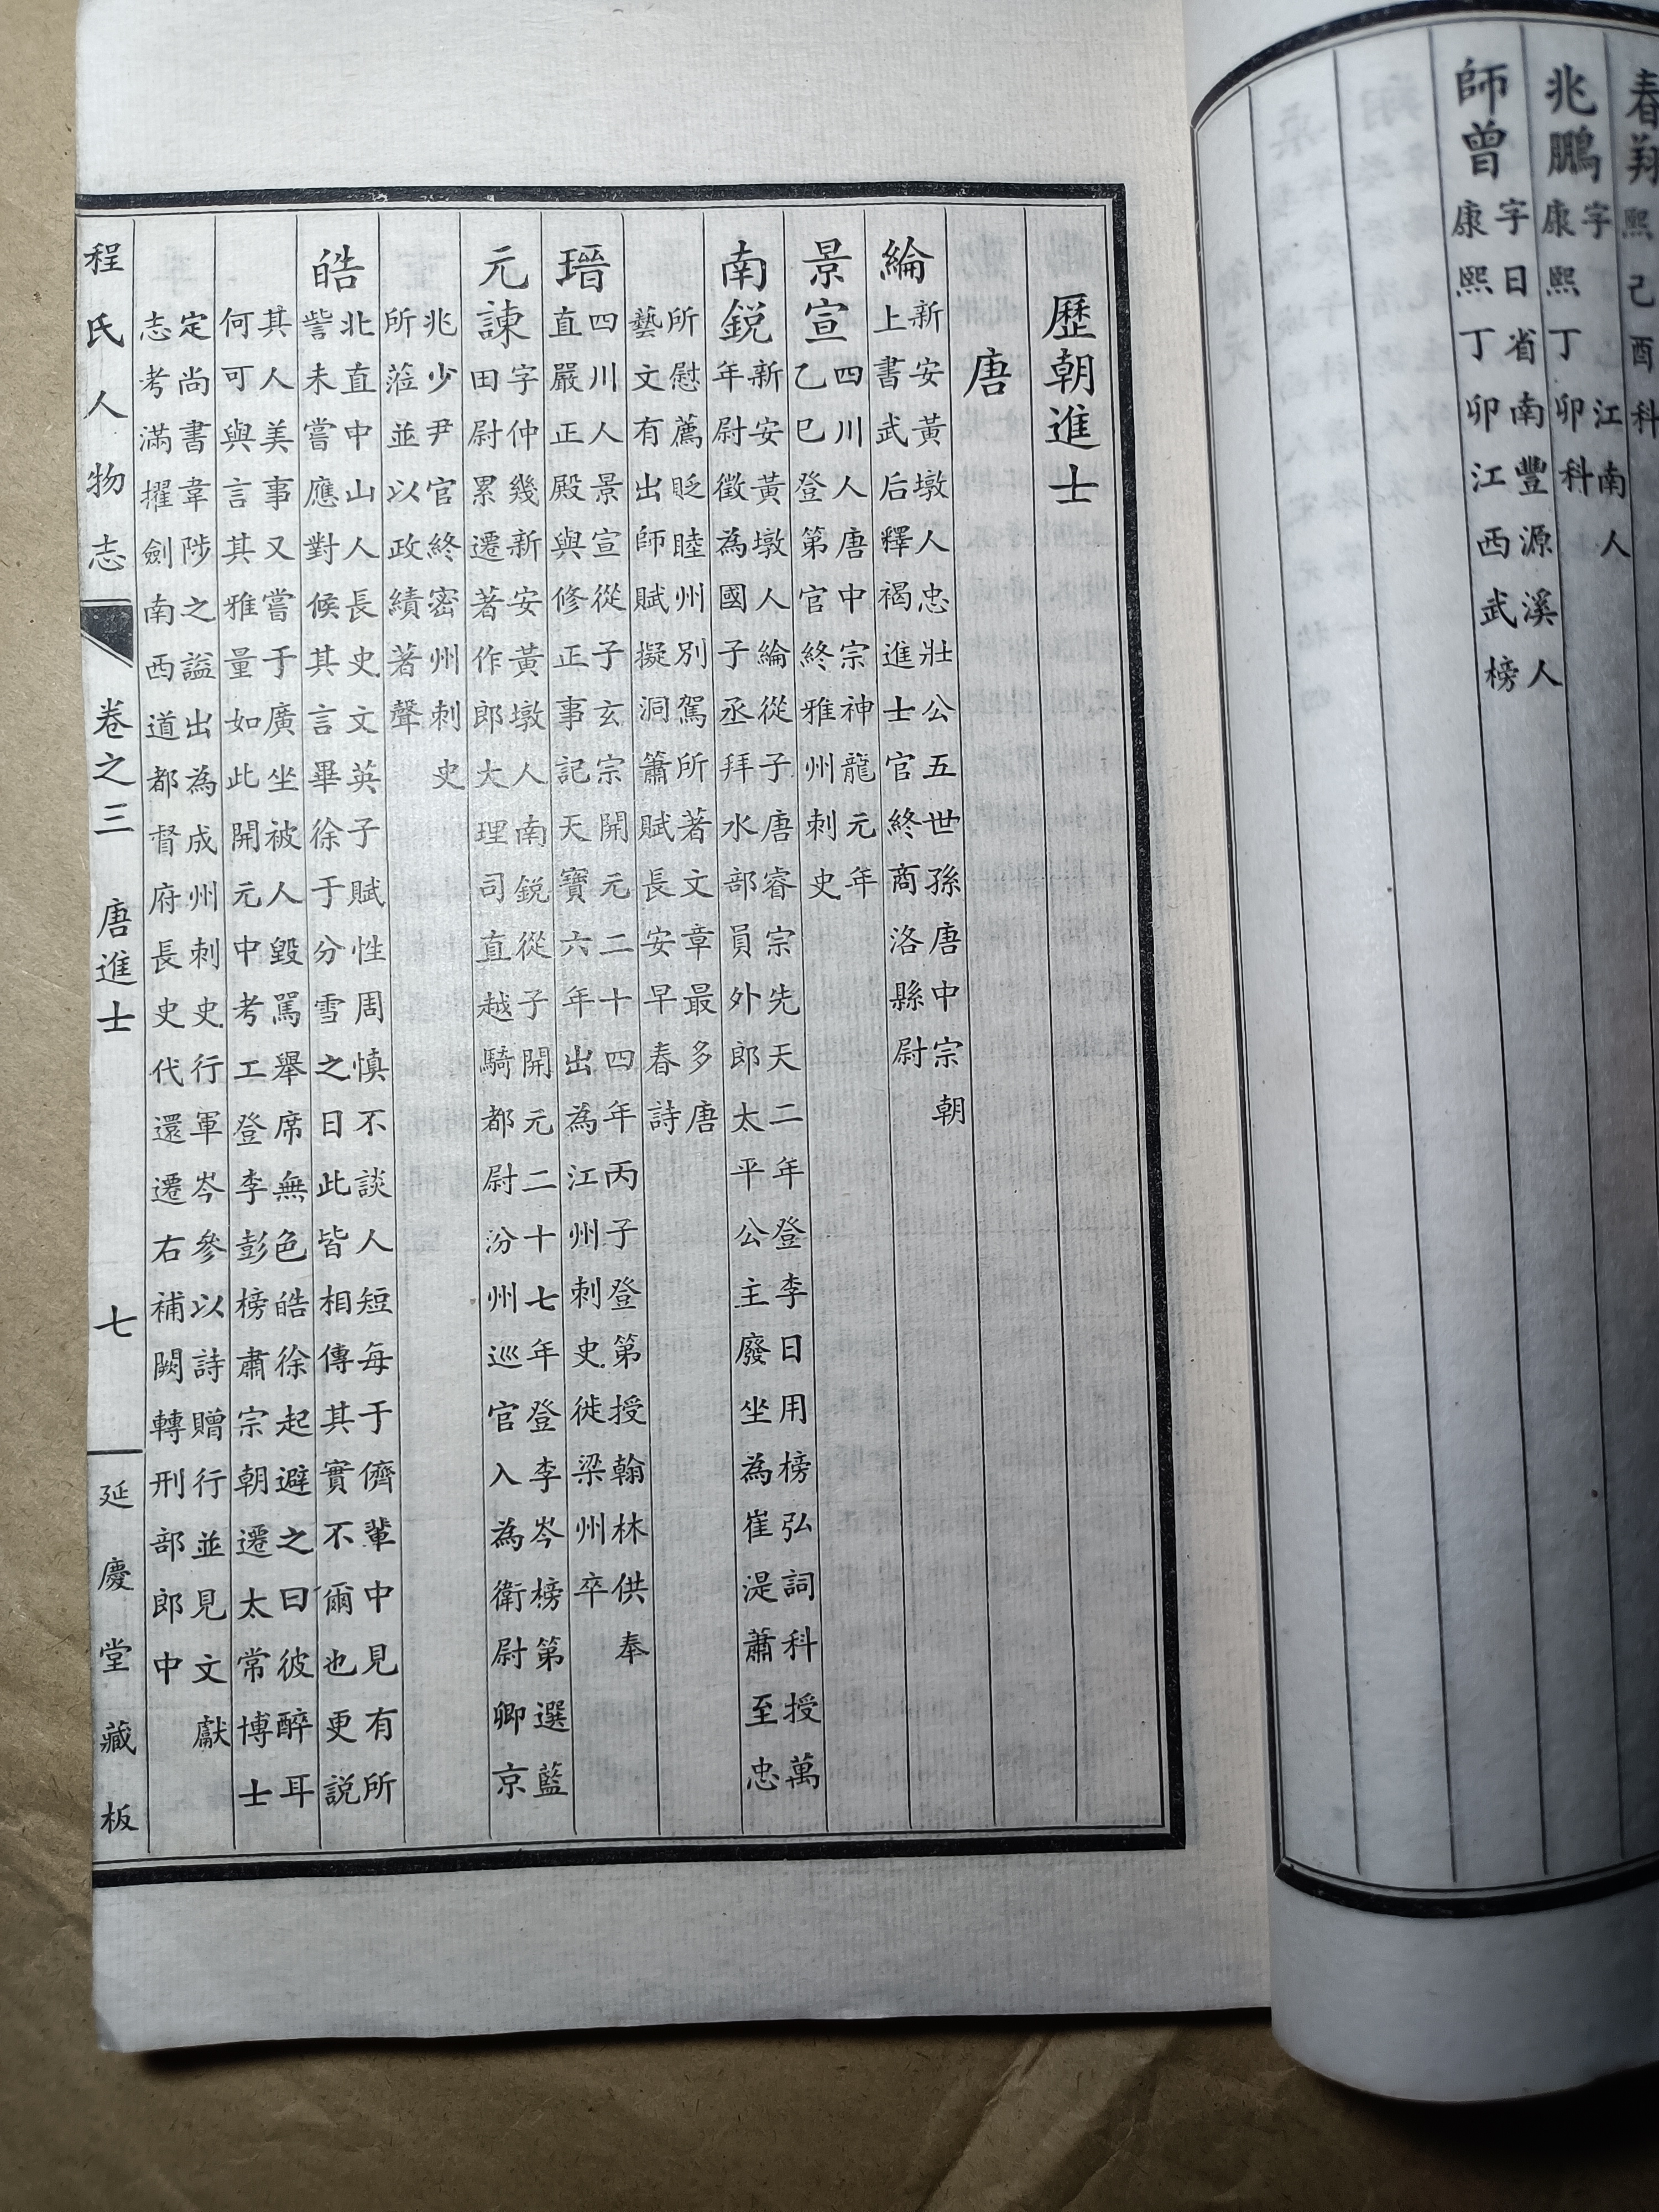 春翔
熙己酉科
兆鵬
字　江南人
康熙丁卯科
師曾
字日省南豐源溪人
康熙丁卯江西武榜
歷朝進士
唐
綸
新安黃墩人忠壯公五世孫唐中宗朝
上書武后釋褐進士官終商洛縣尉
景宣
四川人唐中宗神龍元年
乙巳登第官終雅州刺史
南銳
新安黃墩人綸從子唐睿宗先天二年登李日用榜弘詞科授萬
年尉徵為國子丞拜水部員外郎太平公主廢坐為崔湜蕭至忠
所慰薦貶睦州別駕所著文章最多唐
藝文有出師賦擬洞簫賦長安早春詩
瑨
四川人景宣從子玄宗開元二十四年丙子登第授翰林供奉
直嚴正殿與修正事記天寶六年出為江州刺史徙梁州卒
元諫
字仲幾新安黃墩人南銳從子開元二十七年登李岑榜第選藍
田尉累遷著作郎大理司直越騎都尉汾州巡官入為衛尉卿京
兆少尹官終密州刺史
所蒞並以政績著聲
皓
北直中山人長史文英子賦性周慎不談人短每于儕輩中見有所
訾未嘗應對候其言畢徐于分雪之曰此皆相傳其實不爾也更說
其人美事又嘗于廣坐被人毀罵舉席無色皓徐起避之曰彼醉耳
何可與言其雅量如此開元中考工登李彭榜肅宗朝遷太常博士
定尚書韋陟之謚出為成州刺史行軍岑參以詩贈行並見文獻
志考滿擢劍南西道都督府長史代還遷右補闕轉刑部郎中
程氏人物志
卷之三　唐進士
七
延慶堂藏板